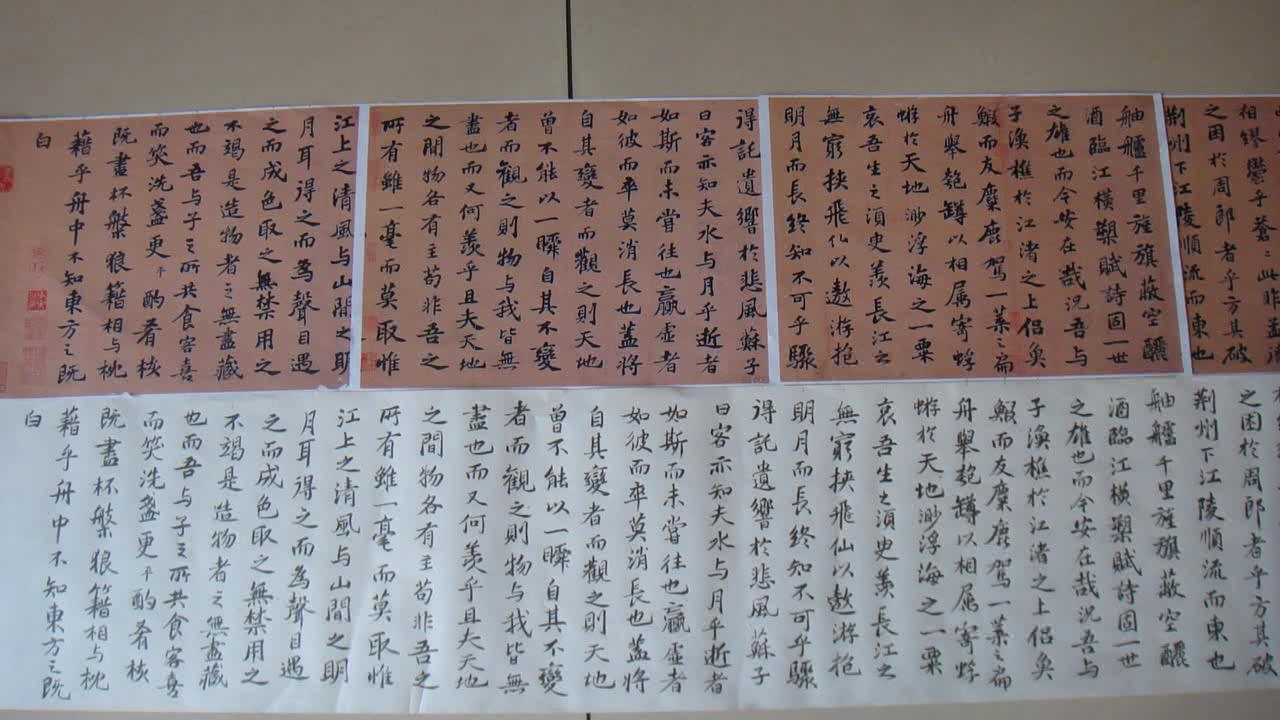 相繆鬱乎蒼〻此非孟
之困於周郎者乎方其破
荆州下江陵順流而東也
舳艫千里旌旗蔽空釃
酒臨江橫槊賦詩固一世
之雄也而今安在哉況吾与
子漁樵於江渚之上侶魚
鰕而友麋鹿駕一葉之扁
舟舉匏罇以相属寄蜉
蝣於天地渺浮海之一粟
哀吾生之須臾羨長江之
無窮挾飛仙以遨游抱
明月而長終知不可乎驟
得託遺響於悲風蘇子
曰客亦知夫水与月乎逝者
如斯而未嘗往也贏虛者
如彼而卒莫消長也盖將
自其變者而觀之則天地
曾不能以一瞬自其不變
者而觀之則物与我皆無
盡也而又何羨乎且夫天地
之間物各有主苟非吾之
所有雖一毫而莫取惟
江上之清風与山間之明
月耳得之而為聲目遇
之而成色取之無禁用之
不竭是造物者之無盡藏
也而吾与子之所共食客喜
而笑洗盞更平酌肴核
既盡杯槃狼籍相与枕
藉乎舟中不知東方之既
白
之困於周郎者乎方其破
荆州下江陵順流而東也
舳艫千里旌旗蔽空釃
酒臨江橫槊賦詩固一世
之雄也而今安在哉況吾与
子漁樵於江渚之上侶魚
鰕而友麋鹿駕一葉之扁
舟舉匏罇以相属寄蜉
蝣於天地渺浮海之一粟
哀吾生之須臾羨長江之
無窮挾飛仙以遨游抱
明月而長終知不可乎驟
得託遺響於悲風蘇子
曰客亦知夫水与月乎逝者
如斯而未嘗往也贏虛者
如彼而卒莫消長也盖將
自其變者而觀之則天地
曾不能以一瞬自其不變
者而觀之則物与我皆無
盡也而又何羨乎且夫天地
之間物各有主苟非吾之
所有雖一毫而莫取惟
江上之清風与山間之明
月耳得之而為聲目遇
之而成色取之無禁用之
不竭是造物者之無盡藏
也而吾与子之所共食客喜
而笑洗盞更平酌肴核
既盡杯槃狼籍相与枕
藉乎舟中不知東方之既
白